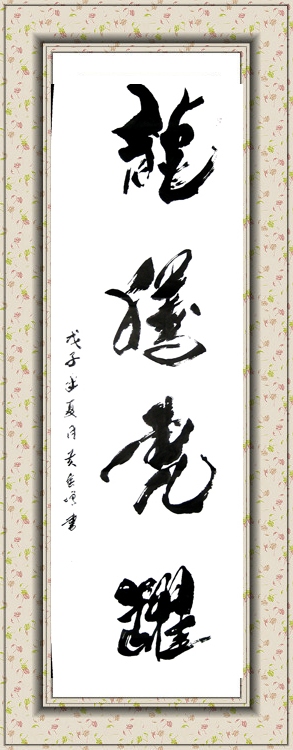 龍騰虎躍
戊子年夏月黄金
書